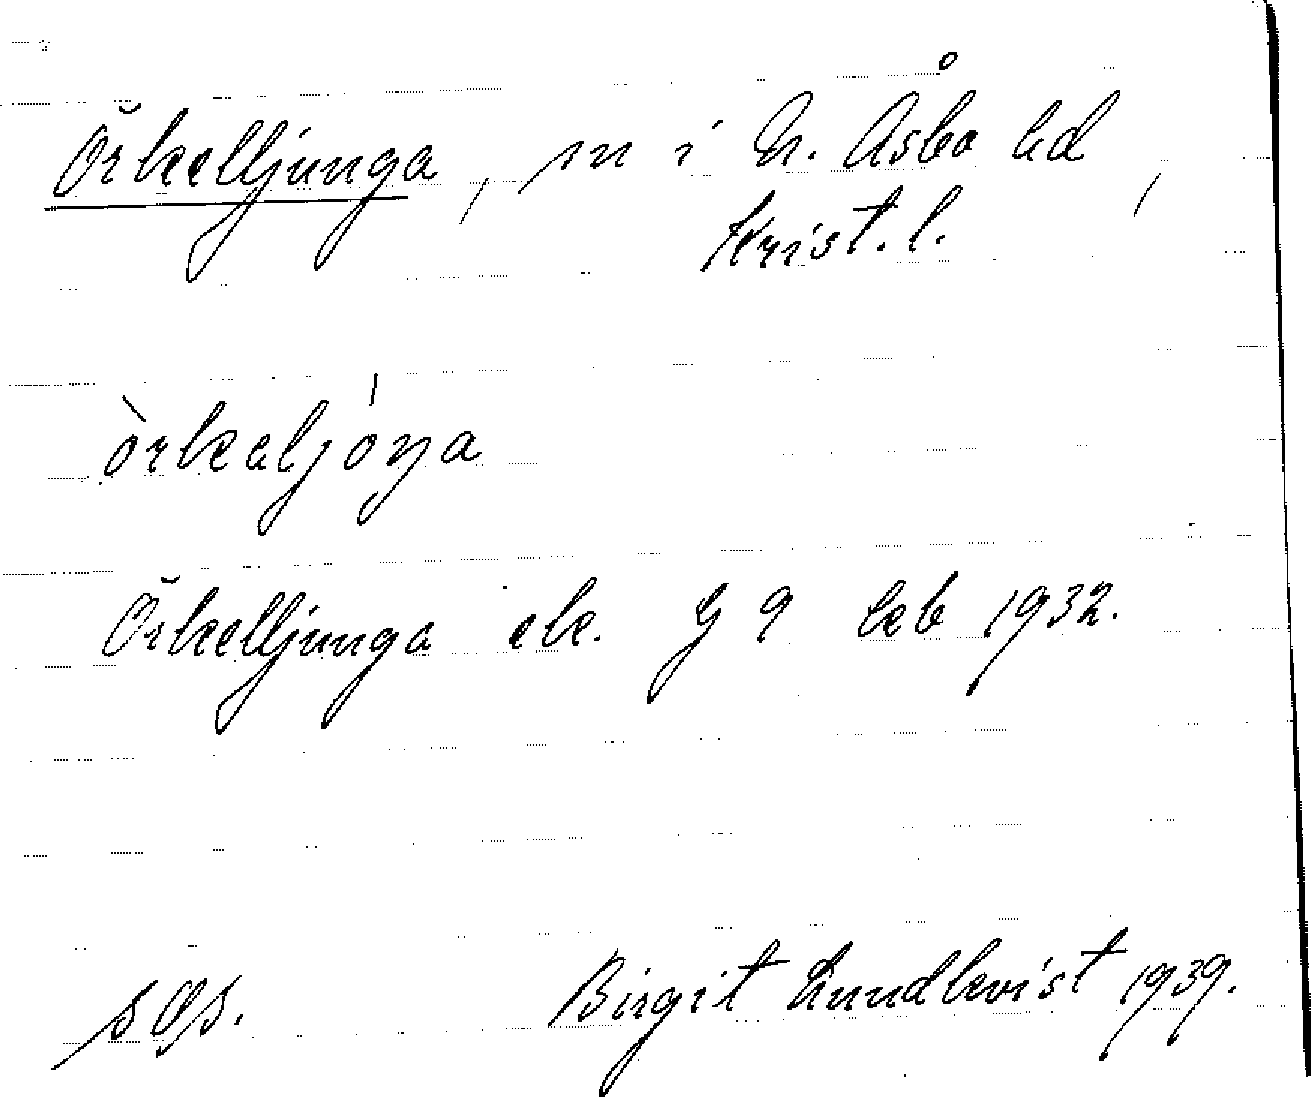 Örkelljunga, sn i N. Åsbo hd,
Krist. l.
òrkəljóŋa
Örkelljunga ek. G 9 keb 1932.
s Ög.
Birgit Lundkvist 1939.